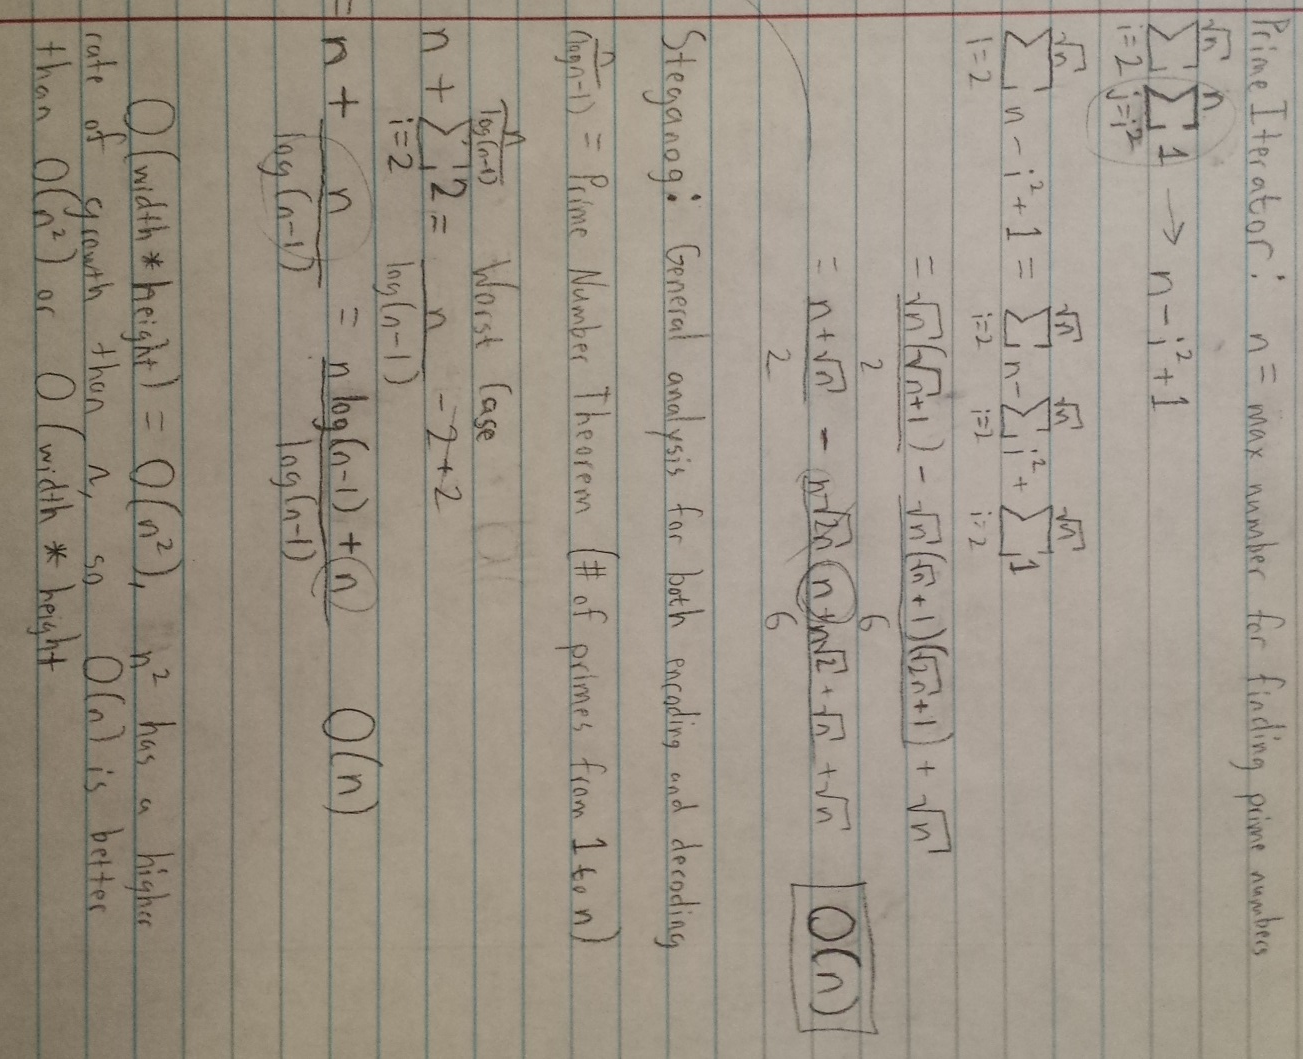 Prime Iterator: n = max number for finding prime numbers
√n ∑ i=2 n ∑ j=i² 1 → n - i² + 1
√n ∑ i=2 n - i² + 1 = √n ∑ i=2 n - √n ∑ i=2 i² + √n ∑ i=2 1
= √n(√n+1) / 2 - √n(√n+1)(√2n+1) / 6 + √n
= n+√n / 2 - n√2n (n + n√2 + √n / 6 + √n O(n)
Steganog: General analysis for both encoding and decoding
n / (log n-1) = Prime Number Theorem (# of primes from 1 to n)
n / log(n-1) Worst Case
n + ∑ i=2 2 = n / log(n-1) - 2 + 2
= n + n / log(n-1) = n log(n-1) + n / log(n-1) O(n)
O(width * height) = O(n²), n² has a higher
rate of growth than n, so O(n) is better
than O(n²) or O(width * height